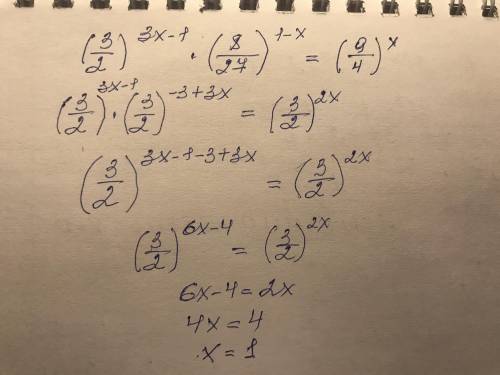 (3/2)^{3x-1} · (8/27)^{1-x} = (9/4)^x
(3/2)^{3x-1} · (3/2)^{-3+3x} = (3/2)^{2x}
(3/2)^{3x-1-3+3x} = (3/2)^{2x}
(3/2)^{6x-4} = (3/2)^{2x}
6x-4=2x
4x=4
x=1